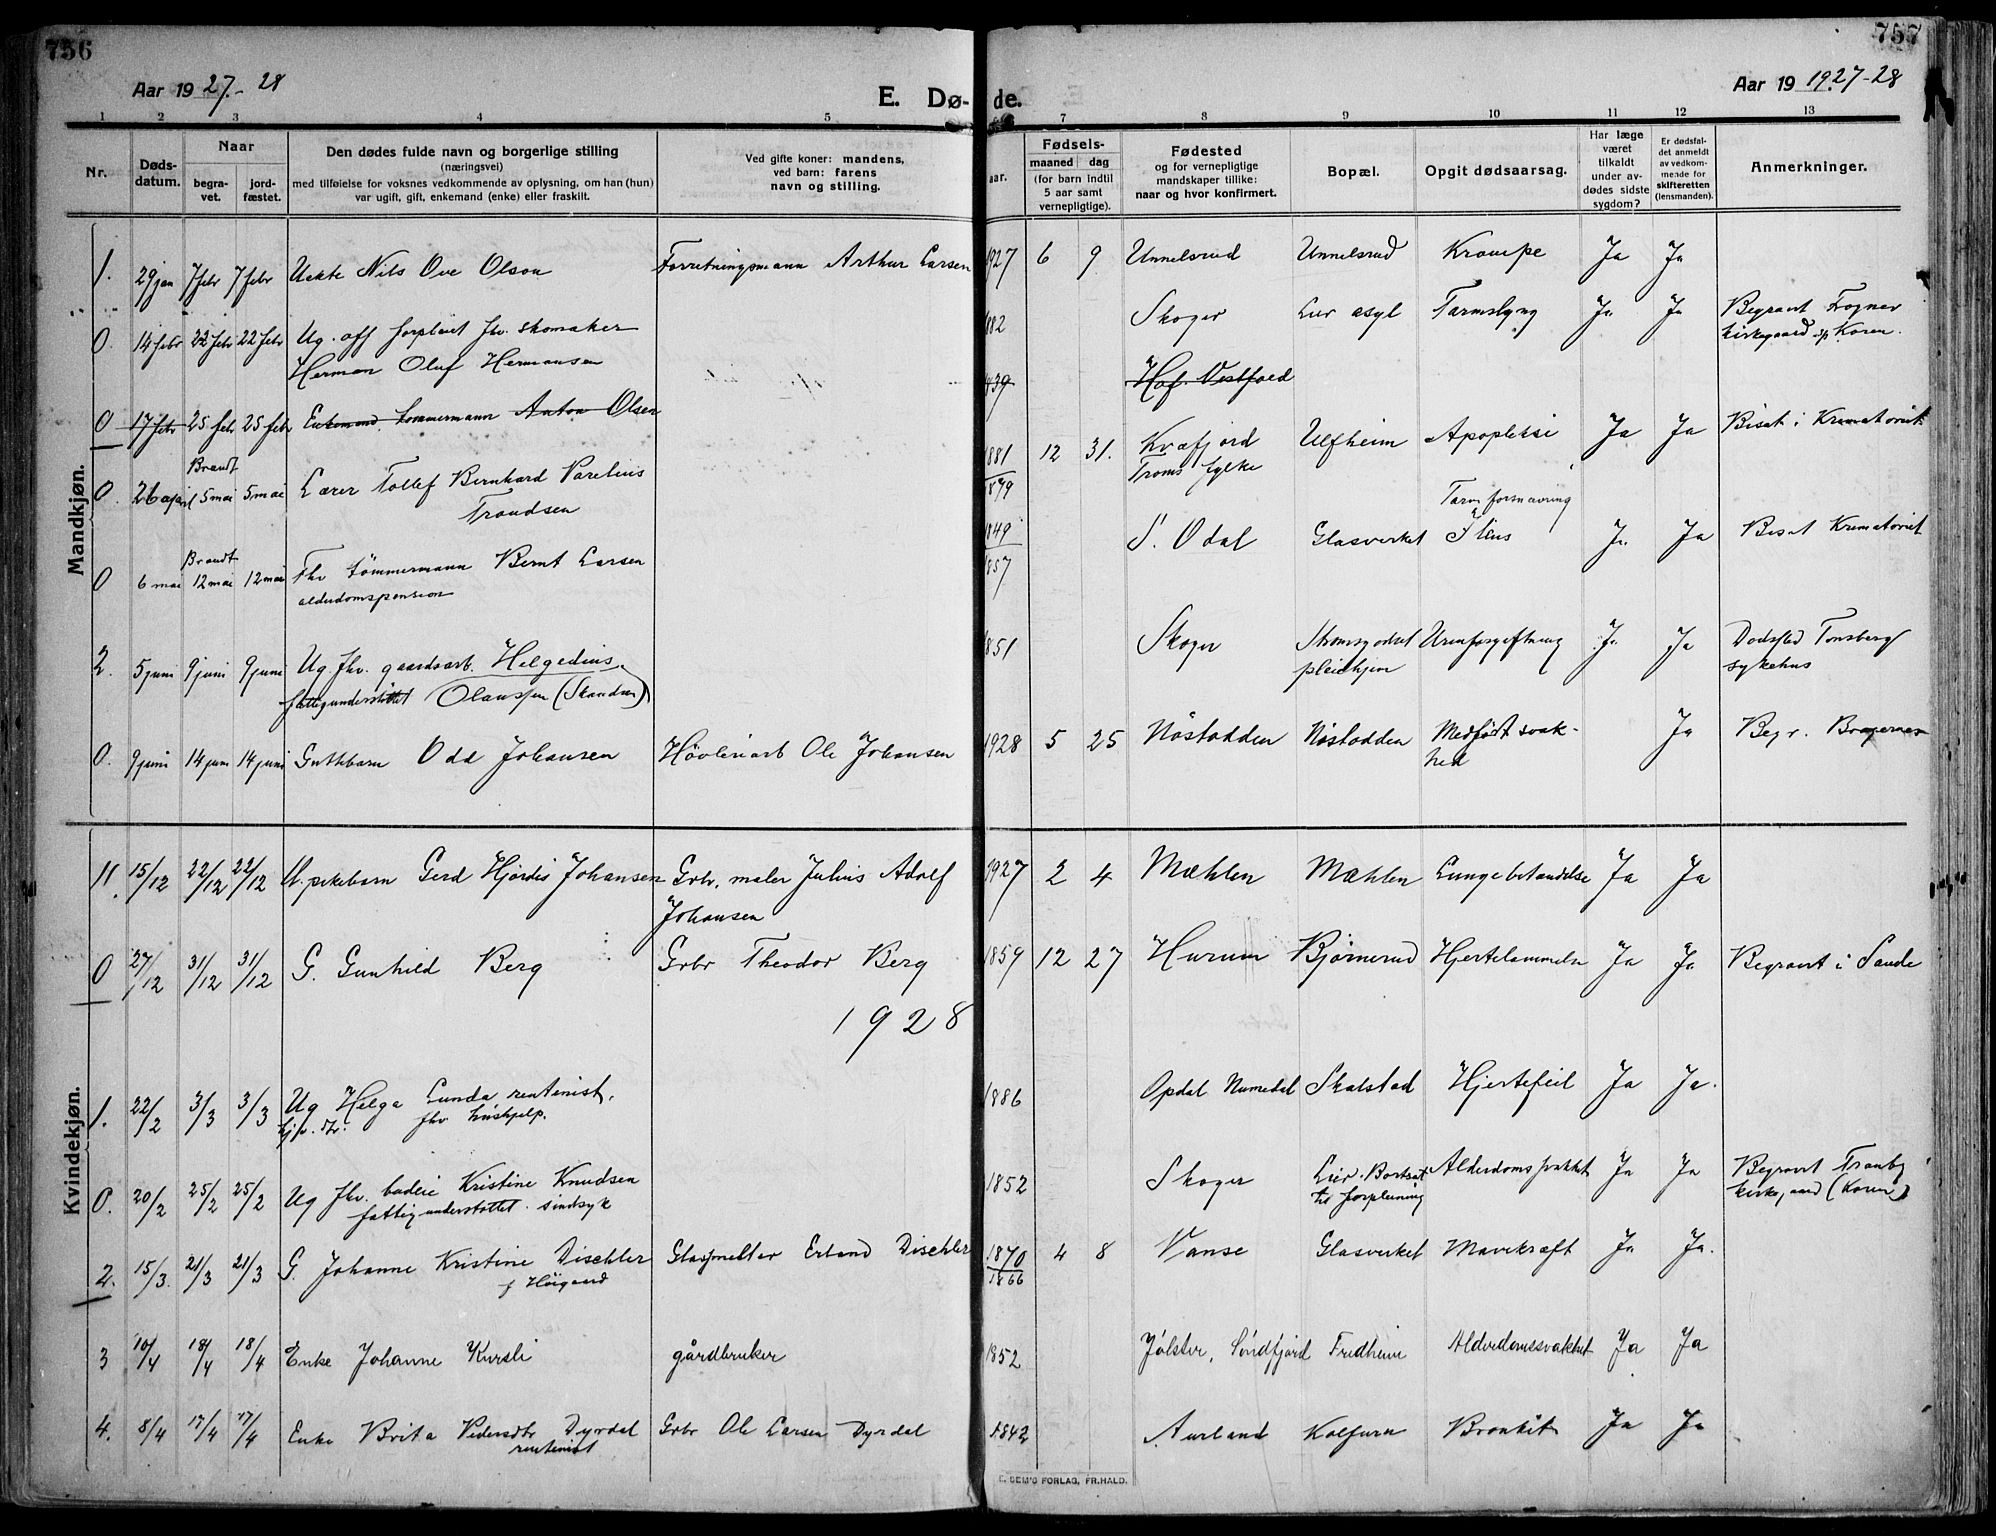 756
757
Aar 19 27.- 28
E. Dø-
de.
Aar 19 1927-28
1 2 3 4 5 7 8 9 10 11 12 13
Nr.
Døds-
datum.
Naar
begra-
vet.
jord-
fæstet.
Den dødes fulde navn og borgerlige stilling
(næringsvei)
med tilføielse for voksnes vedkommende av oplysning, om han (hun)
var ugift, gift, enkemand (enke) eller fraskilt.
Ved gifte koner: mandens,
ved barn: farens
navn og stilling.
aar.
Fødsels-
maaned dag
(for barn indtil
5 aar samt
vernepligtige).
Fødested
og for vernepligtige
mandskaper tillike:
naar og hvor konfirmert.
Bopæl.
Opgit dødsaarsag.
Har læge
været
tilkaldt
under av-
dødes sidste
sygdom?
Er dødsfal-
det anmeldt
av vedkom-
mende for
skifteretten
(lensmanden).
Anmerkninger.
Mandkjøn.
1. 29 jan 7 febr 7 febr Uekte Nils Ove Olson Forretningsmann Arthur Larsen 1927 6 9 Unnelsrud Unnelsrud Krampe Ja Ja
0. 14 febr 22 febr 22 febr Ug. off forpleiet fhv. skomaker
Herman Oluf Hermansen
882 Skoger Lier asyl Tarmslyng Ja Ja Begravt Frogner
kirkegaard sp Koren.
0 17 febr 25 febr 25 febr Enkemand tømmermann Anton Olsen 439 Hof. Vestfold
0. 26 april Brandt 5 mai 5 mai Lærer Tollef Bernhard Varelius
Trondsen
1881 12 31. Kvæfjord Ulfheim Apopleksi Ja Ja Bisat i Krematoriet
1879 Troms fylke
0 6 mai Brandt 12 mai 12 mai Fhv tømmermann Bernt Larsen
alderdomspension
1849 S. Odal Glasverket Tarmforsnævring
Ileus Ja Ja Bisat Krematoriet
1857
2. 5 juni 9 juni 9 juni Ug fhv. gaardsarb. Helgedius
fattigunderstøttet Olaussen (Skaudum)
1851 Skoger Strømsgodset Urinforgiftning Ja Ja Dødssted Tønsberg
pleiehjem sykehus
0. 9 juni 14 juni 14 juni Guttbarn Odd Johansen Høvleriarb Ole Johansen 1928 5 25 Nøstodden Nøstodden Medfødt svak-
hed Ja Begr. Bragernes
Kvindekjøn.
11. 15/12 22/12 22/12 U. pikebarn Gerd Hjørdis Johansen Grbr. maler Julius Adolf
Johansen
1927 2 4 Mæhlen Mæhlen Lungebetændelse Ja Ja
0 27/12 31/12 31/12 G. Gunhild Berg Grbr Theodor Berg 1859 12 27 Hurum Bjørnerud Hjertelammelse Ja Ja Begravt i Sande
1928
1. 22/2 3/3 3/3 Ug Helga Lunda rentenist,
fhv hushjelp.
1886 Opdal Numedal Skalstad Hjertefeil Ja Ja.
0. 20/2 25/2 25/2 Ug fhv. budeie Kristine Knudsen
fattigunderstøttet. sindsyk
1852 Skoger Lier. Bortsat
til forpleining Alderdomssvakhet Ja Ja Begravet Tranby
kirkegaard (Koren)
2. 15/3. 21/3 21/3 G. Johanne Kristine Dischler
f Høigaard
Glassmelter Erland Dischler 1870 4 8 Vanse Glasverket Mavekræft Ja Ja.
1866
3 10/4 18/4 18/4 Enke Johanne Kursli gårdbruker 1852 Jølster, Søndfjord Fredheim Alderdomssvakhet Ja Ja
4. 8/4 17/4 17/4 Enke Brita Pedersdtr Dyrdal
rentenist
Grbr Ole Larsen Dyrdal 1842 Aurland Kolfurn Bronkit Ja Ja
E. SEM'S FORLAG, FR.HALD.